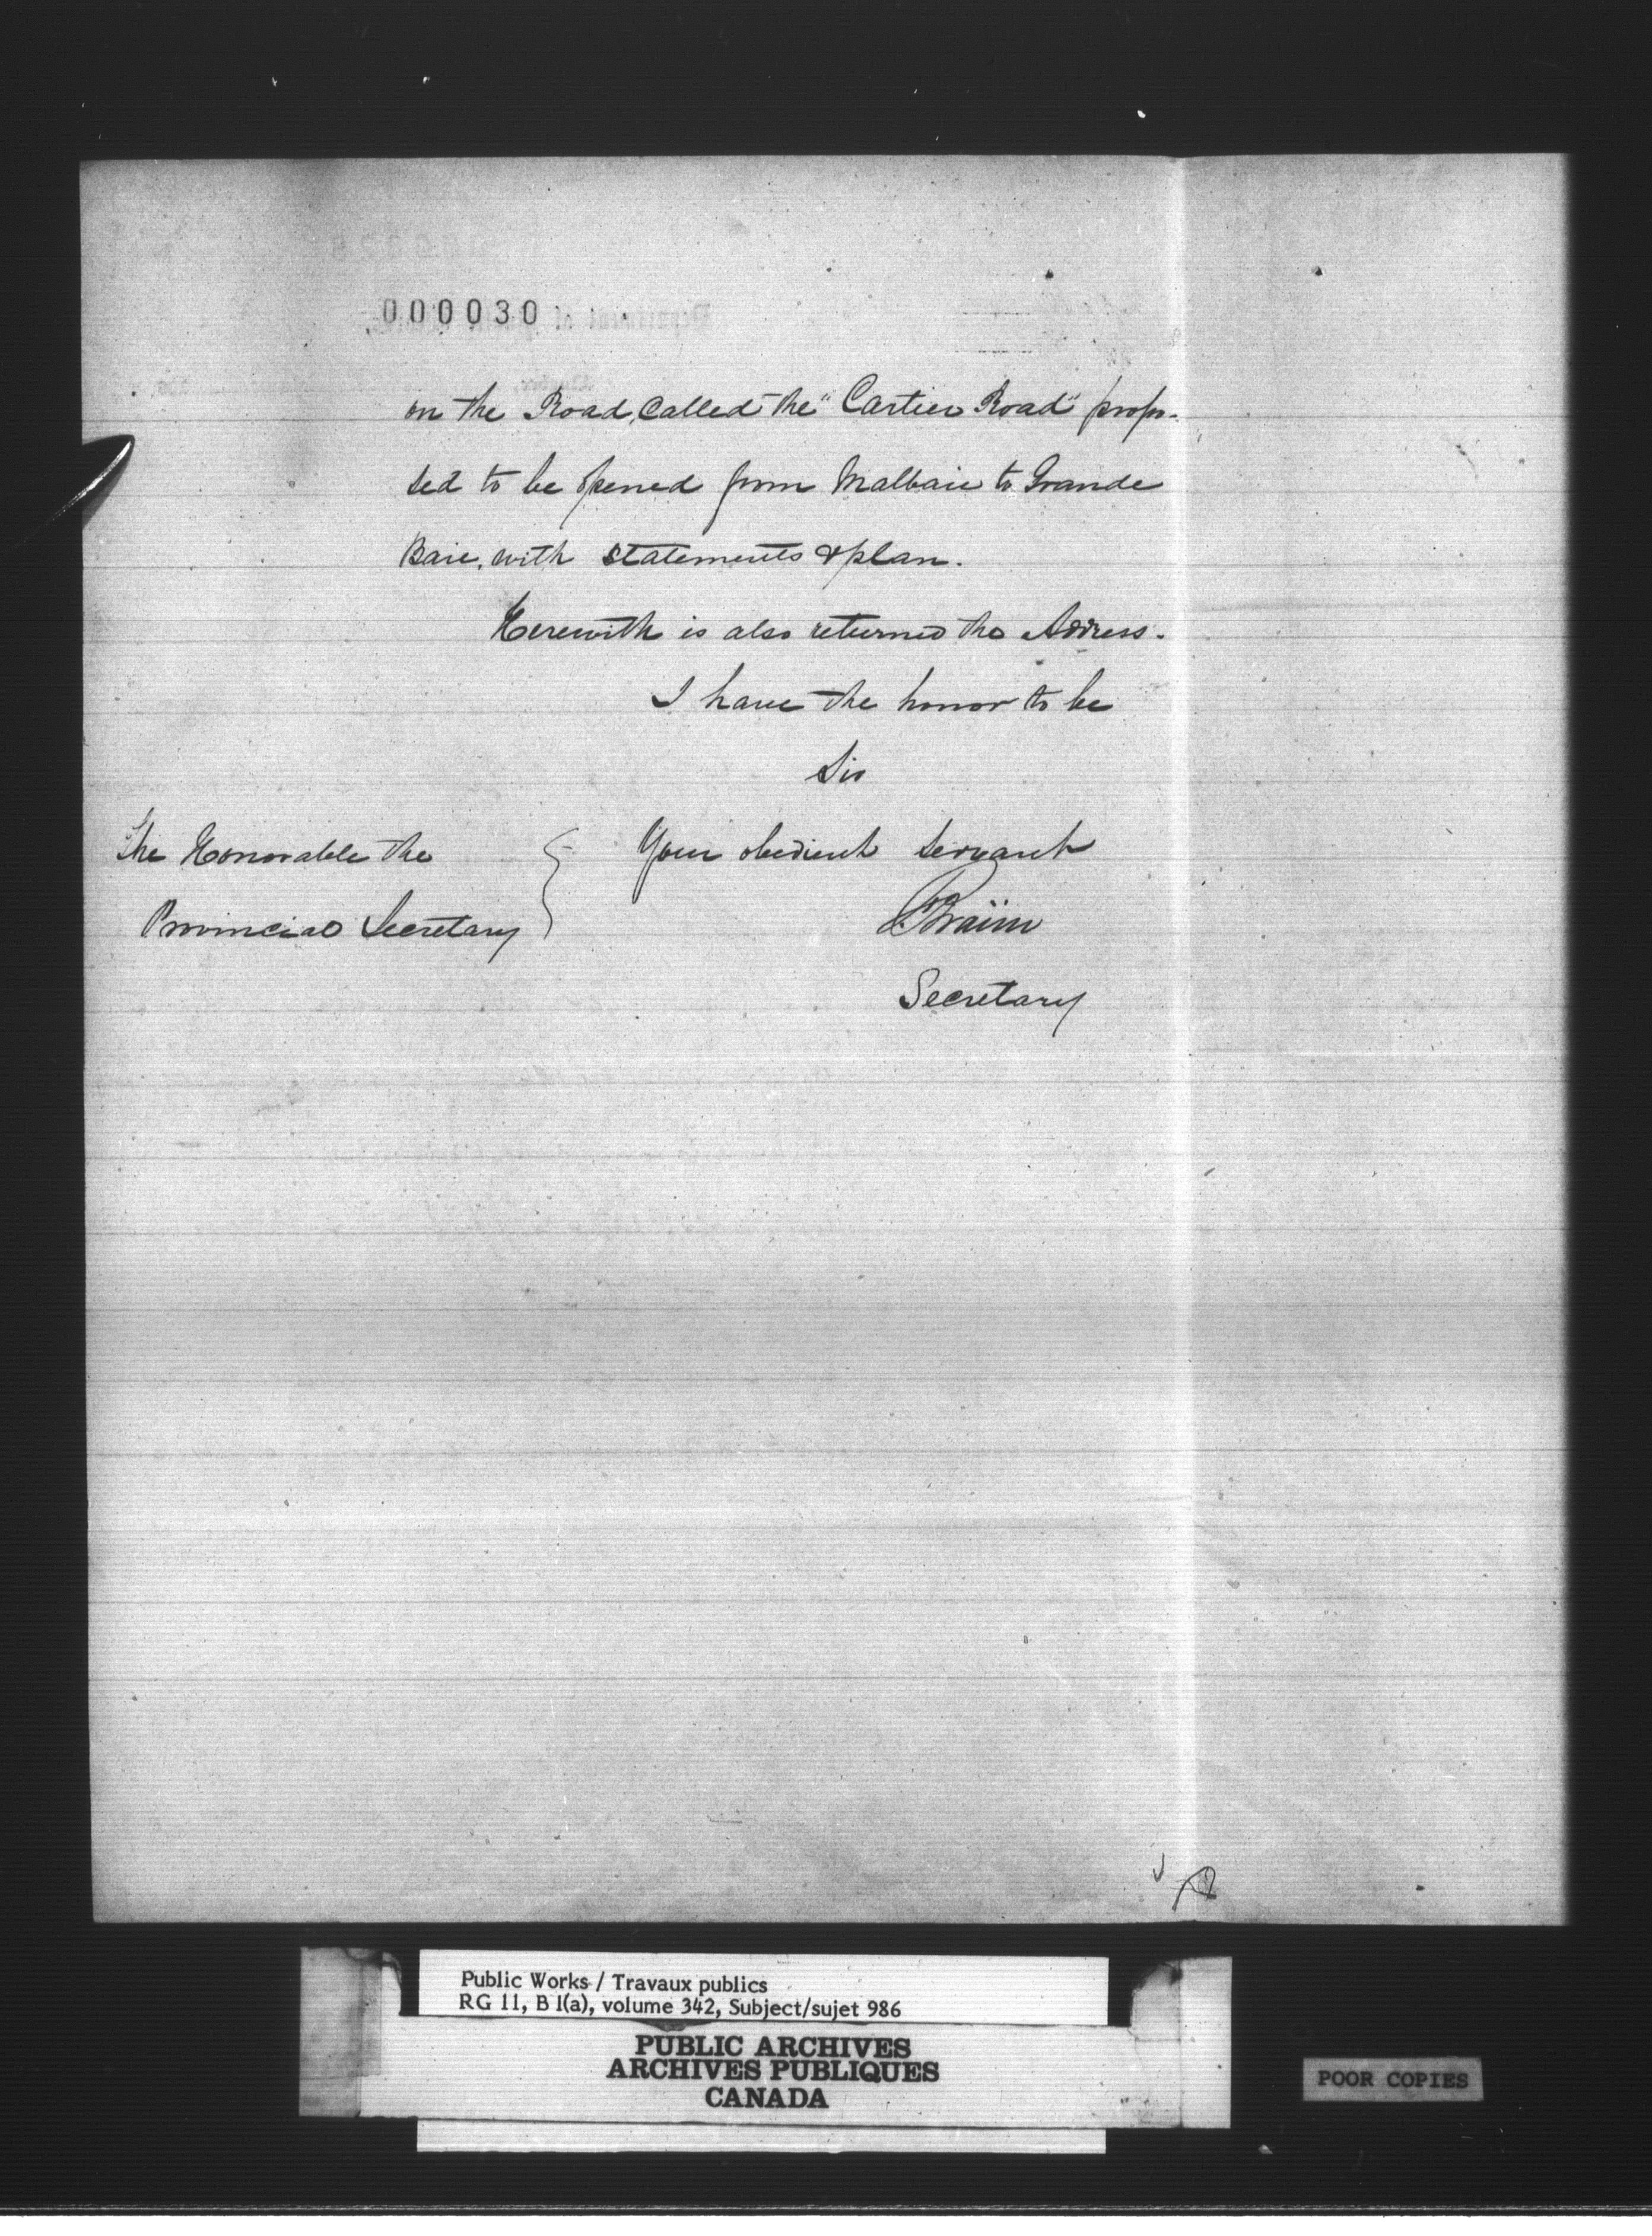 000030
on the Road, called the "Cartier Road" propo-
sed to be opened from Malbaie to Grande
Baie, with statements & plan.
Herewith is also returned the Address.
I have the honor to be
Sir
Your obedient servant
The Honorable the
Provincial Secretary
F. Braün
Secretary
Public Works / Travaux publics
RG 11, B 1(a), volume 342, Subject/sujet 986
PUBLIC ARCHIVES
ARCHIVES PUBLIQUES
CANADA
POOR COPIES